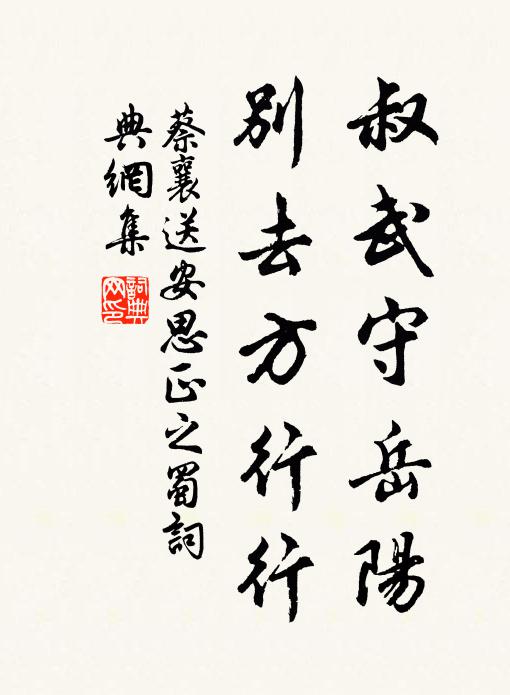 叔武守岳陽
別去方行行
蔡襄送安思正之蜀詞
典網集
詞典网印